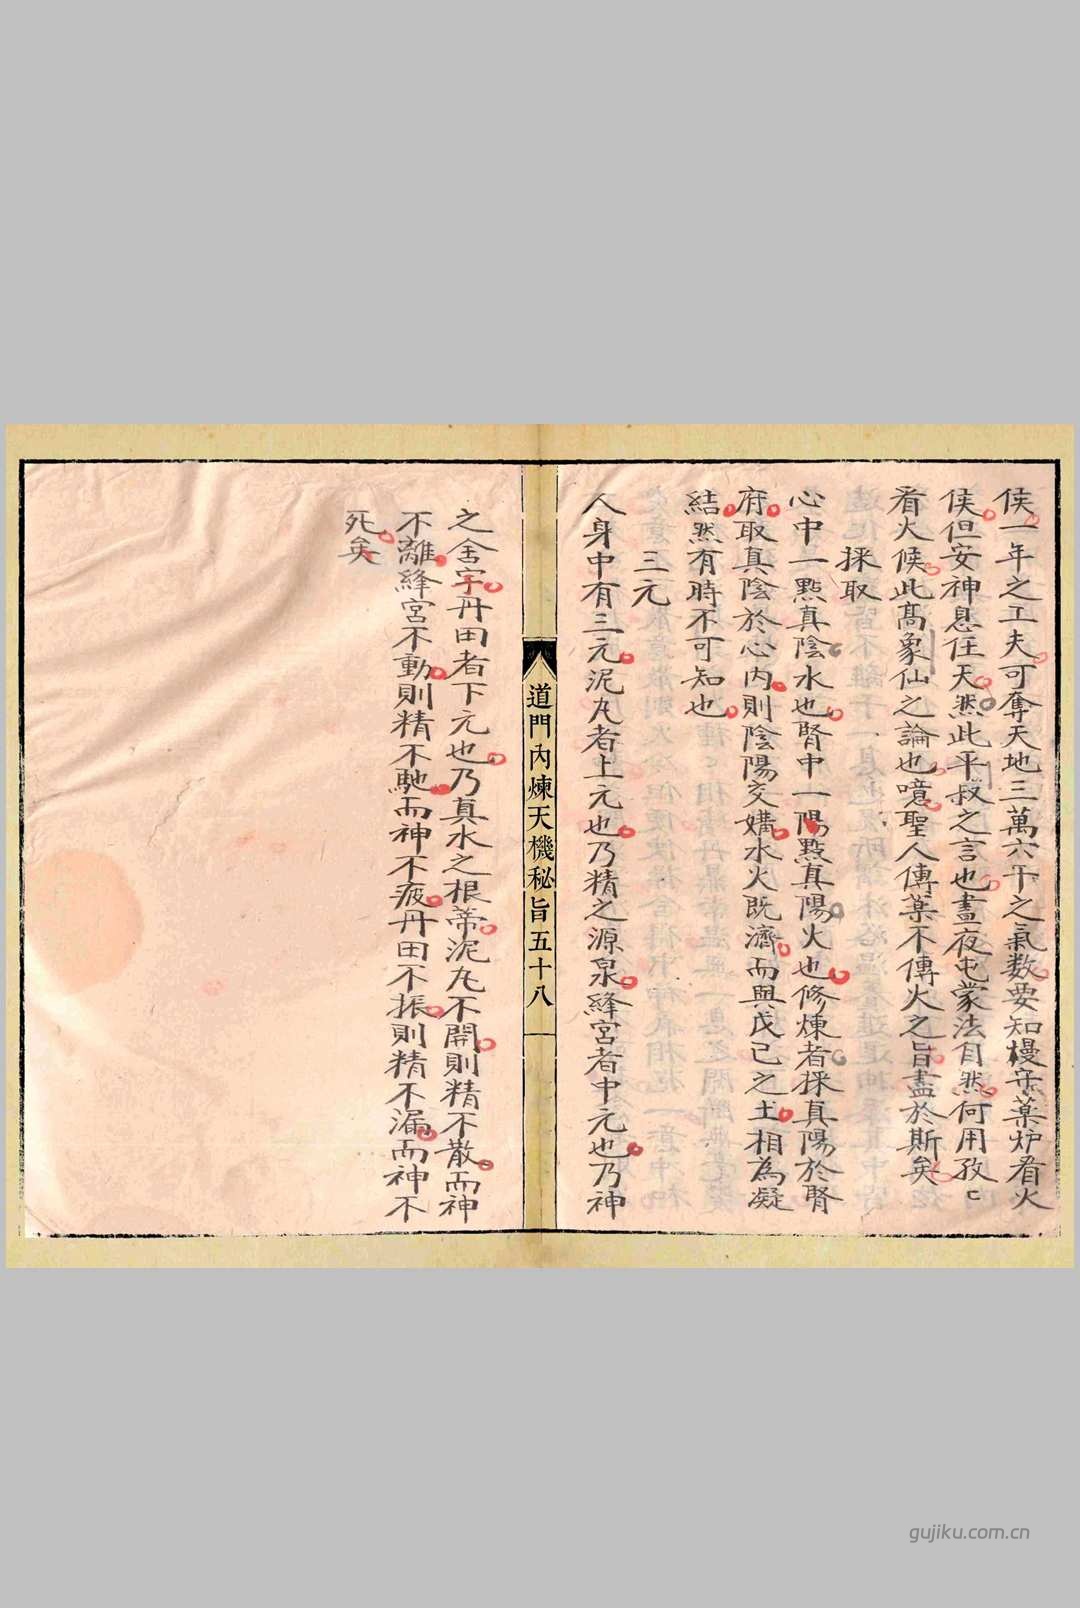 侯一年之工夫可奪天地三萬六千之氣数要知槾守薬炉看火
侯但安神息任天然此平叔之言也晝夜屯蒙法自然何用孜〻
看火候此髙象仙之論也噫聖人傳薬不傳火之旨盡於斯矣
採取
心中一點真陰水也腎中一陽點真陽火也修煉者採真陽於腎
府取真陰於心内則陰陽交媾水火既濟而與戊己之土相為凝
結然有時不可知也
三元
人身中有三元泥丸者上元也乃精之源泉絳宮者中元也乃神
道門内煉天機秘旨五十八
之舍字丹田者下元也乃真水之根蒂泥丸不開則精不散而神
不離絳宮不動則精不馳而神不疲丹田不振則精不漏而神不
死矣
gujiku.com.cn